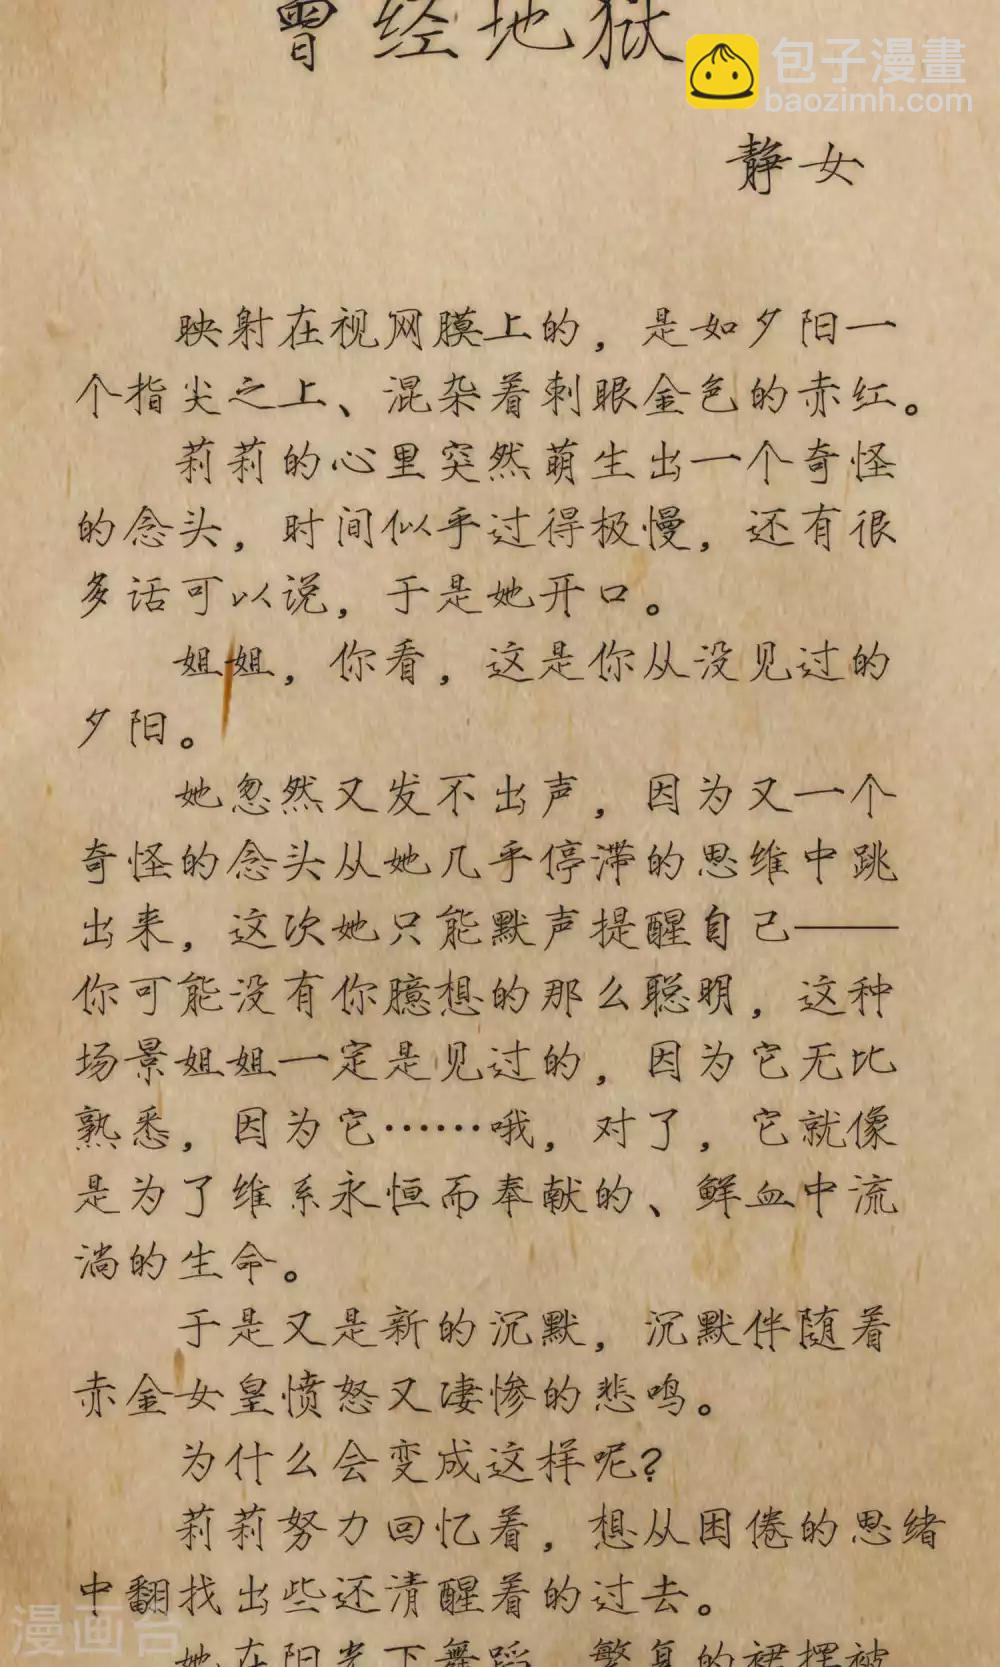 曾经地狱
包子漫畫
baozimh.com
静女
映射在视网膜上的，是如夕阳一
个指尖之上、混杂着刺眼金色的赤红。
莉莉的心里突然萌生出一个奇怪
的念头，时间似乎过得极慢，还有很
多话可以说，于是她开口。
姐姐，你看，这是你从没见过的
夕阳。
她忽然又发不出声，因为又一个
奇怪的念头从她几乎停滞的思维中跳
出来，这次她只能默声提醒自己——
你可能没有你臆想的那么聪明，这种
场景姐姐一定是见过的，因为它无比
熟悉，因为它……哦，对了，它就像
是为了维系永恒而奉献的、鲜血中流
淌的生命。
于是又是新的沉默，沉默伴随着
赤金女皇愤怒又凄惨的悲鸣。
为什么会变成这样呢？
莉莉努力回忆着，想从困倦的思绪
中翻找出些还清醒着的过去。
她在阳光下舞蹈，繁复的裙摆被
漫画台